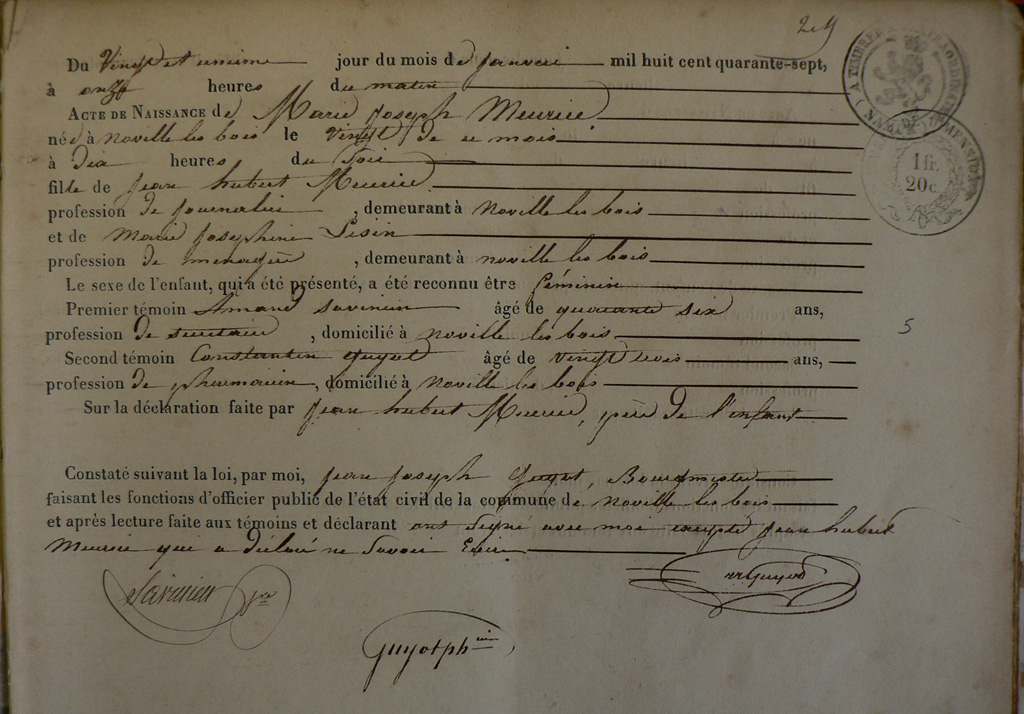 Du Vingt et unieme jour du mois de Janvier mil huit cent quarante-sept,
à onze heures du matin
ACTE DE NAISSANCE de Marie Joseph Meurice
née à noville les bois le vingt de ce mois
à dix heures du soir
fille de Jean hubert Meurice
profession de journalier, demeurant à noville les bois
et de Marie Josephine Lisin
profession de menagere, demeurant à noville les bois
Le sexe de l'enfant, qui a été présenté, a été reconnu être féminin
Premier témoin Amand savinien âgé de quarante six ans,
profession de secretaire, domicilié à noville les bois
Second témoin Constantin guyot âgé de vingt trois ans,
profession de pharmacien, domicilié à noville les bois
Sur la déclaration faite par Jean hubert Meurice, père de l'enfant
Constaté suivant la loi, par moi, Jean Joseph Guyot, Bourgmestre
faisant les fonctions d'officier public de l'état civil de la commune de noville les bois
et après lecture faite aux témoins et déclarant ont signé avec moi excepté Jean hubert
Meurice qui a déclaré ne savoir Ecrire
Savinien
Guyot
Guyot ph
1 fr.
20 c.
5